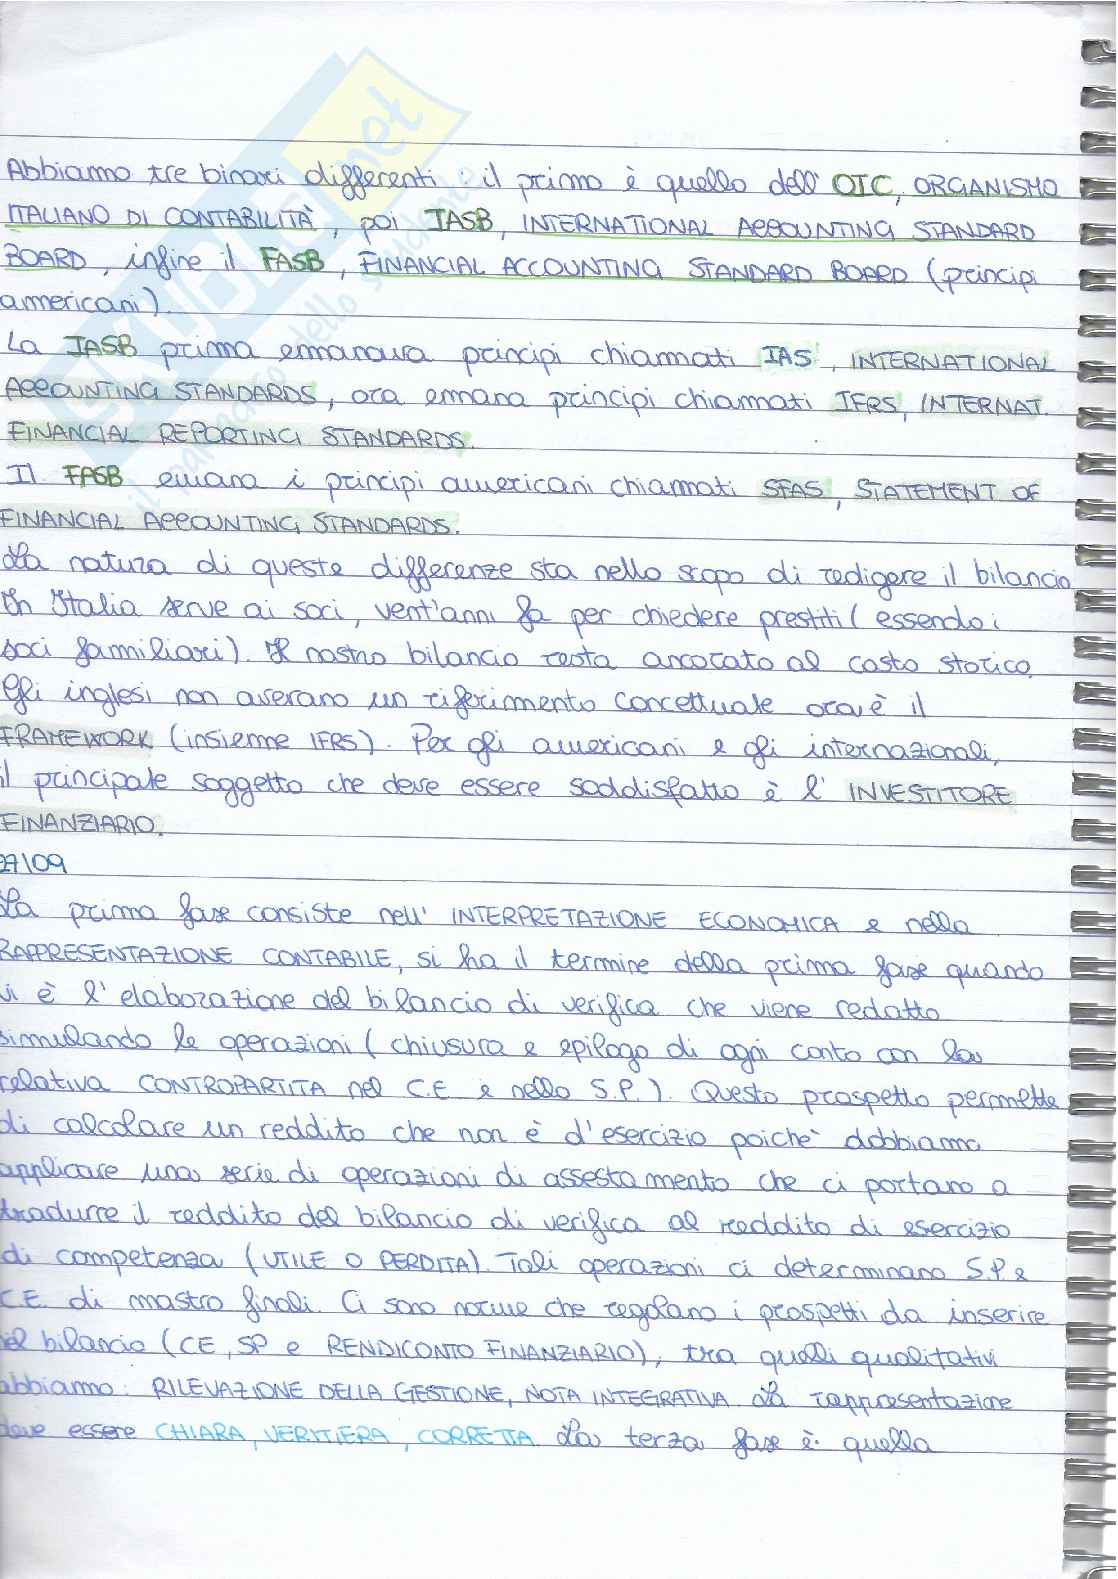 Abbiamo tre binari differenti: il primo è quello dell' OIC, ORGANISMO
ITALIANO DI CONTABILITÀ, poi IASB, INTERNATIONAL ACCOUNTING STANDARD
BOARD, infine il FASB, FINANCIAL ACCOUNTING STANDARD BOARD (principi
americani).
La IASB prima emanava principi chiamati IAS, INTERNATIONAL
ACCOUNTING STANDARDS, ora emana principi chiamati IFRS, INTERNAT.
FINANCIAL REPORTING STANDARDS.
Il FASB emana i principi americani chiamati SFAS, STATEMENT OF
FINANCIAL ACCOUNTING STANDARDS.
La natura di queste differenze sta nello scopo di redigere il bilancio
In Italia serve ai soci, vent'anni fa per chiedere prestiti (essendo i
soci familiari). Il nostro bilancio resta ancorato al costo storico.
Gli inglesi non avevano un riferimento concettuale ora è il
FRAMEWORK (insieme IFRS). Per gli americani e gli internazionali,
il principale soggetto che deve essere soddisfatto è l' INVESTITORE
FINANZIARIO.
27/09
La prima fase consiste nell' INTERPRETAZIONE ECONOMICA e nella
RAPPRESENTAZIONE CONTABILE, si ha il termine della prima fase quando
vi è l'elaborazione del bilancio di verifica che viene redatto
simulando le operazioni (chiusura e epilogo di ogni conto con la
relativa CONTROPARTITA nel C.E e nello S.P.). Questo prospetto permette
di calcolare un reddito che non è d'esercizio poichè dobbiamo
applicare una serie di operazioni di assestamento che ci portano a
tradurre il reddito del bilancio di verifica al reddito di esercizio
di competenza (UTILE O PERDITA). Tali operazioni ci determinano S.P. e
C.E. di mastro finali. Ci sono norme che regolano i prospetti da inserire
nel bilancio (CE, SP e RENDICONTO FINANZIARIO), tra quelli qualitativi
abbiamo: RILEVAZIONE DELLA GESTIONE, NOTA INTEGRATIVA. La rappresentazione
deve essere CHIARA, VERITIERA, CORRETTA. La terza fase è quella